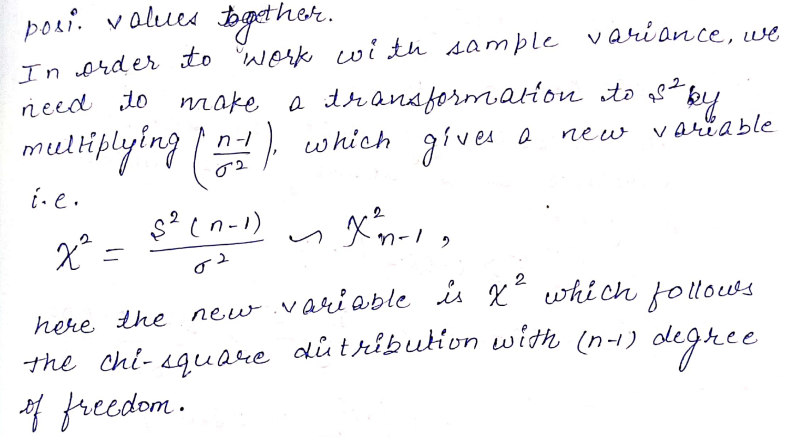 posi. values together.
In order to work with sample variance, we
need to make a transformation to S² by
multiplying (n-1/σ²), which gives a new variable
i.e.
χ² = S²(n-1)/σ² ~ χ²n-1,
here the new variable is χ² which follows
the chi-square distribution with (n-1) degree
of freedom.